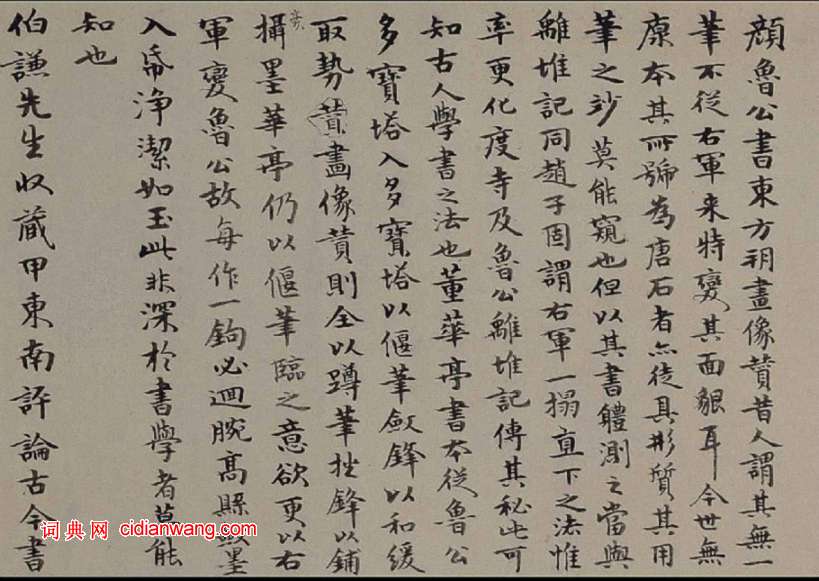 顏魯公書東方朔畫像贊昔人謂其無一
筆不從右軍来特變其面貌耳今世無
原本其所號為唐石者亦徒具形質其用
筆之玅莫能窺也但以其書體測之當與
離堆記同趙子固謂右軍一搨直下之法惟
率更化度寺及魯公離堆記傳其秘此可
知古人學書之法也董華亭書本從魯公
多寶塔入多寶塔以偃筆歛鋒以和緩
取勢贊畫像贊則全以蹲筆挫鋒以鋪
攝墨華亭仍以偃筆臨之意欲更以右
軍變魯公故每作一鉤必迴腕高縣墨
入帋浄潔如玉此非深於書學者莫能
知也
伯謙先生収蔵甲東南評論古今書
词典网 cidianwang.com